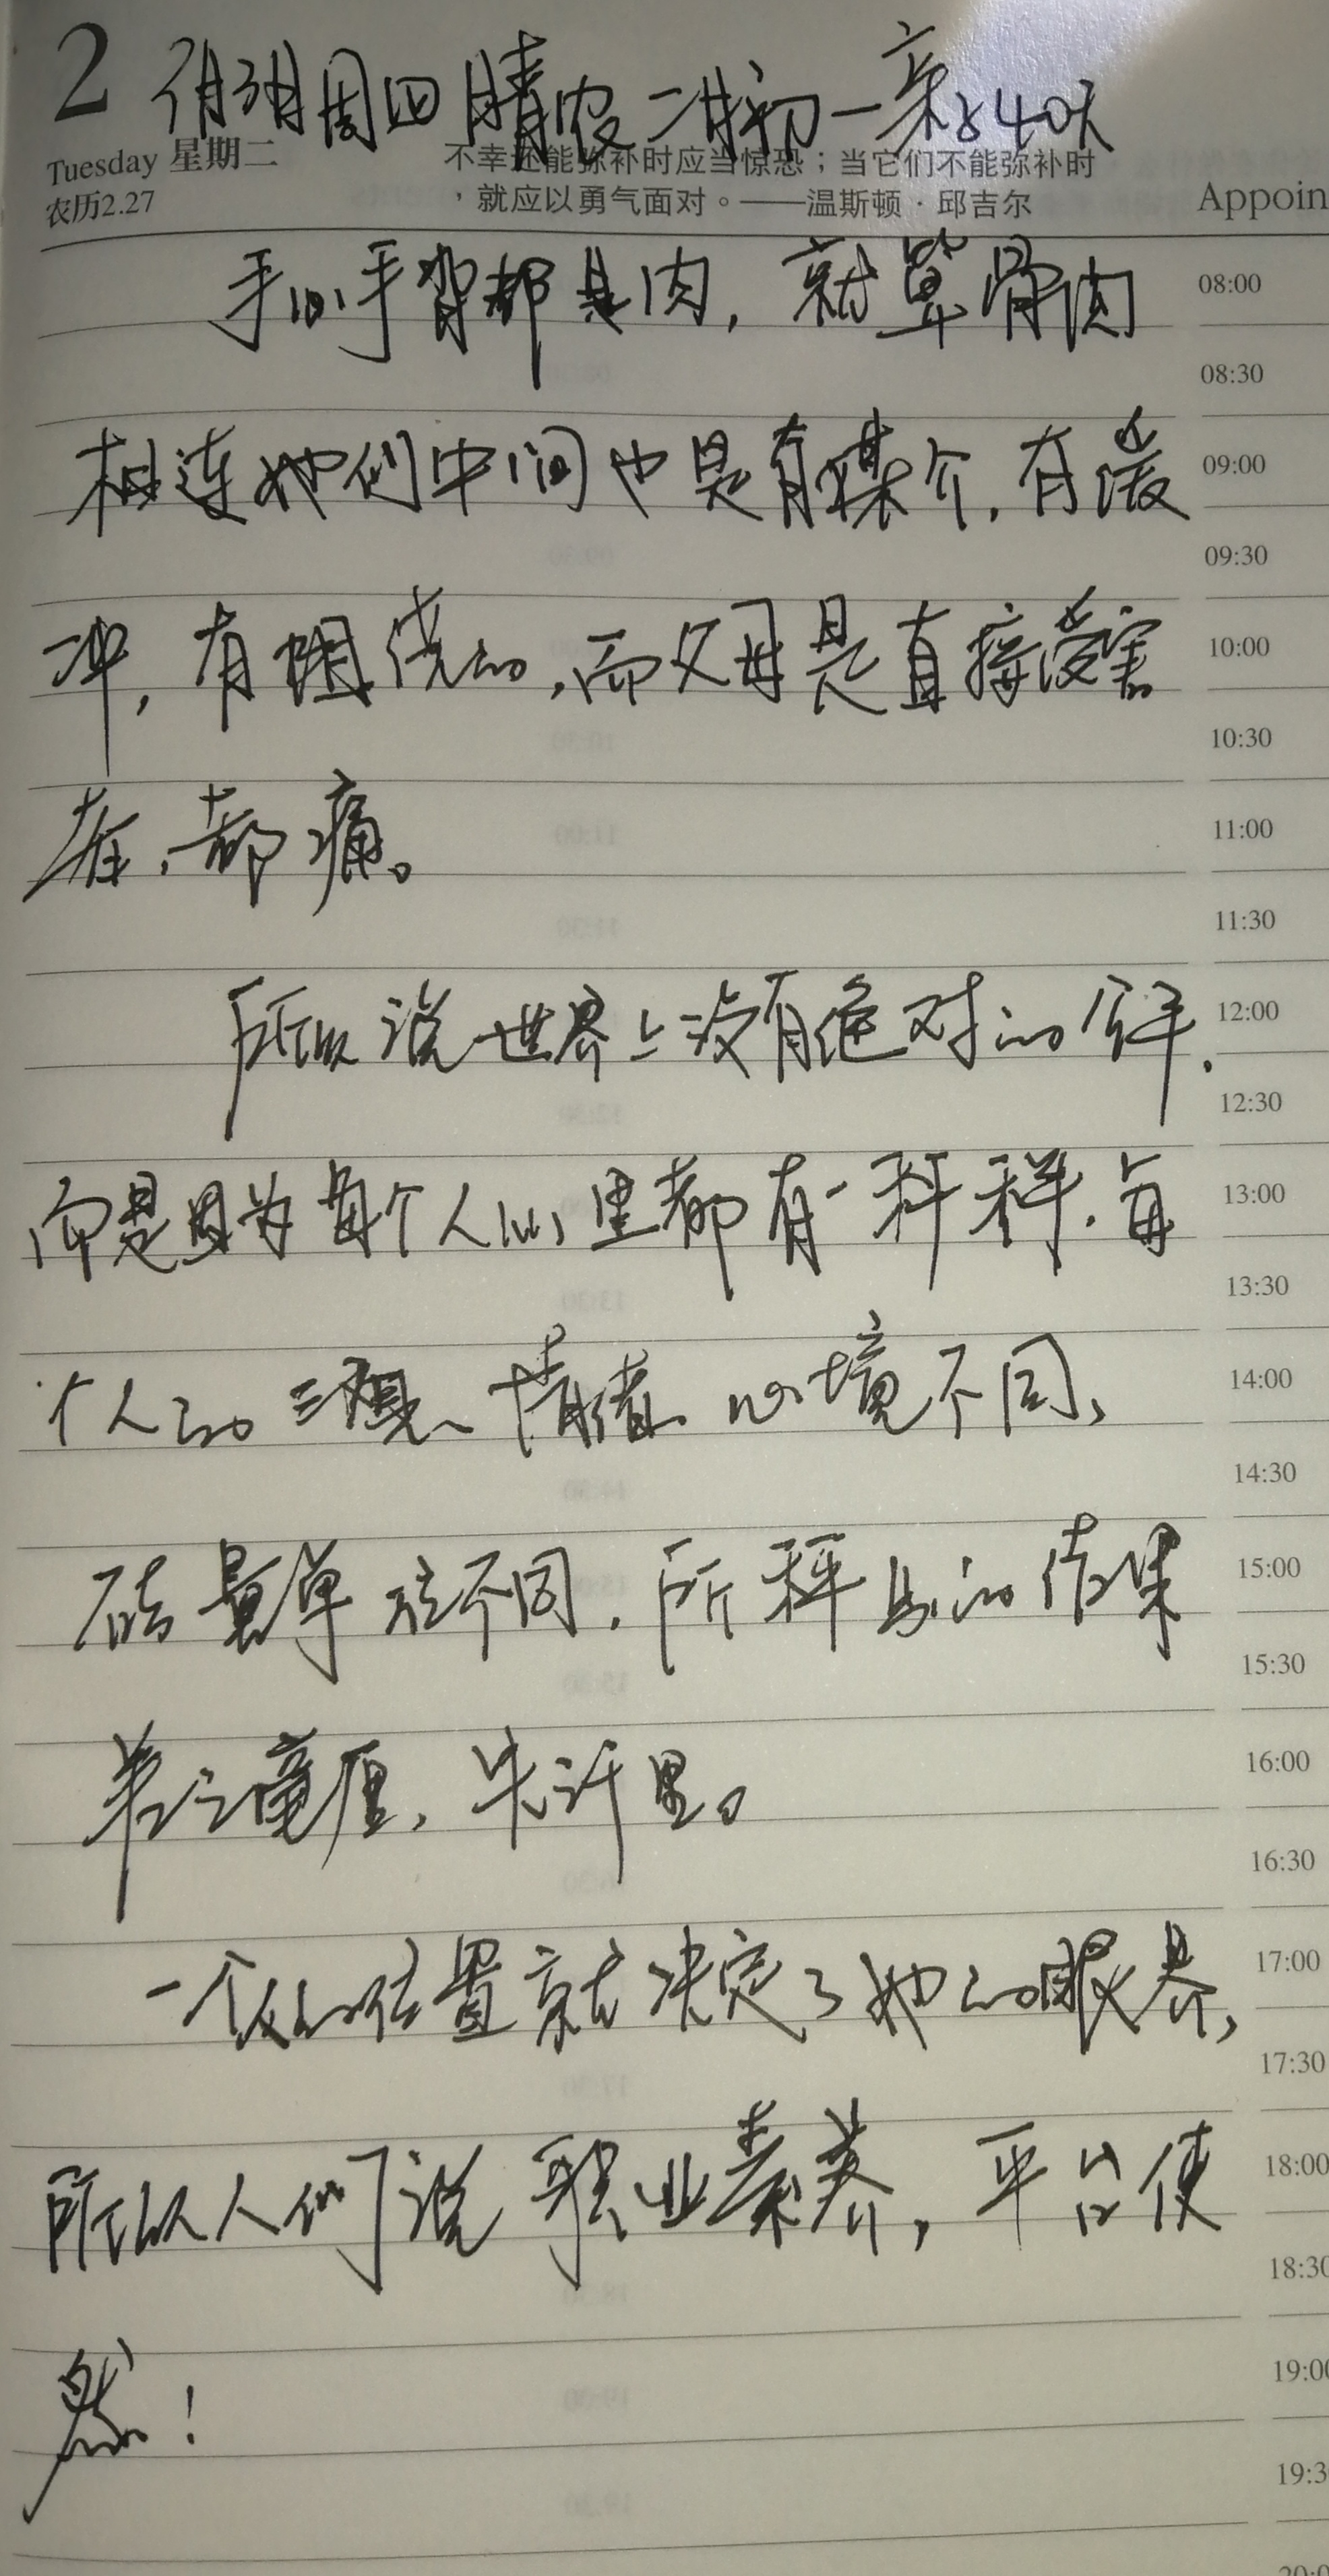 2 月3日周四晴农二廿初一 亲842天
Tuesday 星期二
农历2.27
不幸还能弥补时应当惊恐；当它们不能弥补时
，就应以勇气面对。——温斯顿·邱吉尔
Appoin
手心手背都是肉，就算骨肉
相连她们中间也是有媒介，有缓
冲，有阻绕的，而父母是直接受害
者，都痛。
所以说世界上没有绝对的公平，
而是因为每个人心里都有一杆秤，每
个人的三观、情绪、心境不同、
砝量单位不同，所秤出的结果
差之毫厘，失之千里。
一个人的位置就决定了她的眼界，
所以人们说职业素养，平台使
然！
08:00
08:30
09:00
09:30
10:00
10:30
11:00
11:30
12:00
12:30
13:00
13:30
14:00
14:30
15:00
15:30
16:00
16:30
17:00
17:30
18:00
18:30
19:00
19:3